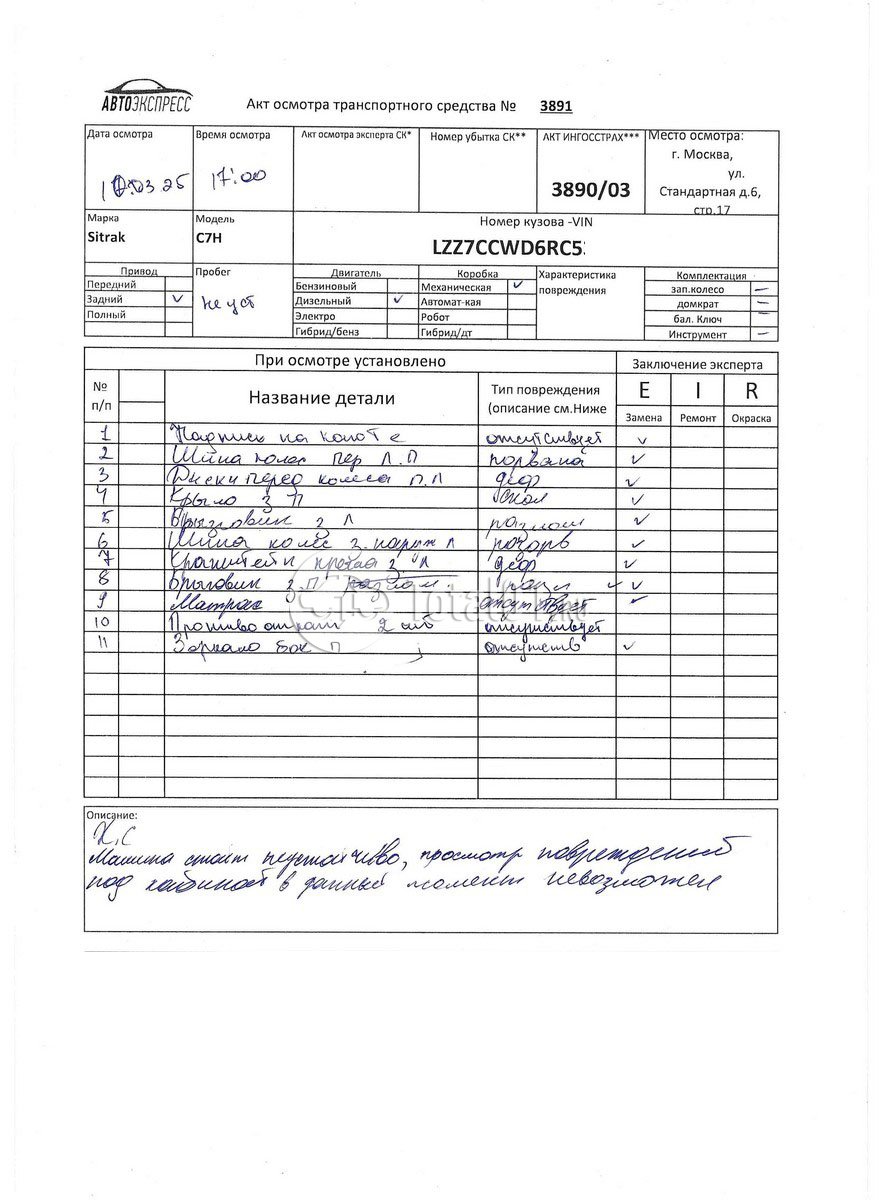 АВТОЭКСПРЕСС
Акт осмотра транспортного средства № 3891
Дата осмотра
Время осмотра
Акт осмотра эксперта СК*
Номер убытка СК**
АКТ ИНГОССТРАХ***
Место осмотра:
г. Москва,
ул.
Стандартная д.6,
стр.17
03 25
17:00
3890/03
Марка
Модель
Номер кузова -VIN
Sitrak
C7H
LZZ7CCWD6RC5
Привод
Пробег
Двигатель
Коробка
Характеристика
повреждения
Комплектация
Передний
Бензиновый
Механическая ✓
зап.колесо —
Задний ✓
не уст
Дизельный ✓
Автомат-кая
домкрат —
Полный
Электро
Робот
бал. Ключ —
Гибрид/бенз
Гибрид/дт
Инструмент —
При осмотре установлено
Заключение эксперта
№
п/п
Название детали
Тип повреждения
(описание см.Ниже
E I R
Замена Ремонт Окраска
1 Надпись на капоте отсутствует ✓
2 Шина колес пер Л.П порвана ✓
3 Диски перед колеса П.Л деф ✓
4 Крыло з П скол ✓
5 Брызговик з Л разлом ✓
6 Шина колес з. наруж Л разорв ✓
7 Кронштейн крыла з Л деф ✓
8 Брызговик з.П разлом разл ✓ ✓
9 Матрас отсутствует ✓
10 Противооткат 2 шт отсутствует
11 Зеркало бок П отсутств ✓
Total01.ru
Описание:
Х,С
Машина стоит неустойчиво, просмотр повреждений
под кабиной в данный момент невозможен